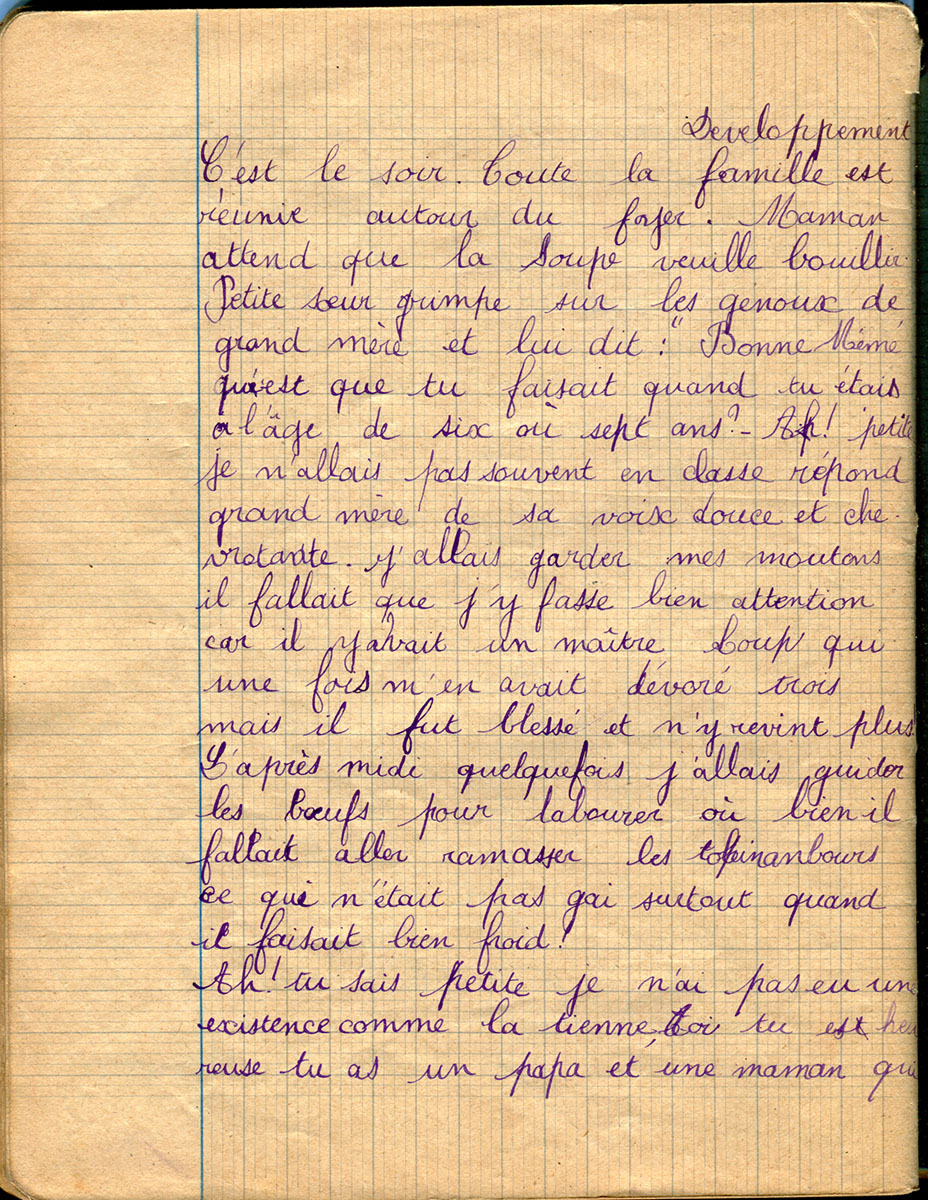 Developpement
C'est le soir. Toute la famille est
réunie autour du foyer. Maman
attend que la soupe veuille bouillir.
Petite sœur grimpe sur les genoux de
grand mère et lui dit : "Bonne Mémé
qu'est que tu faisait quand tu étais
a l'âge de six où sept ans? - Ah! petite
je n'allais pas souvent en classe répond
grand mère de sa voix douce et che-
vrotante. j'allais garder mes moutons
il fallait que j'y fasse bien attention
car il y avait un maître Loup qui
une fois m'en avait dévoré trois
mais il fut blessé et n'y revint plus
L'après midi quelquefois j'allais guider
les bœufs pour labourer où bien il
fallait aller ramasser les topinanbours
ce qui n'était pas gai surtout quand
il faisait bien froid!
Ah! tu sais petite je n'ai pas eu une
existence comme la tienne, toi tu est heu
reuse tu as un papa et une maman qui